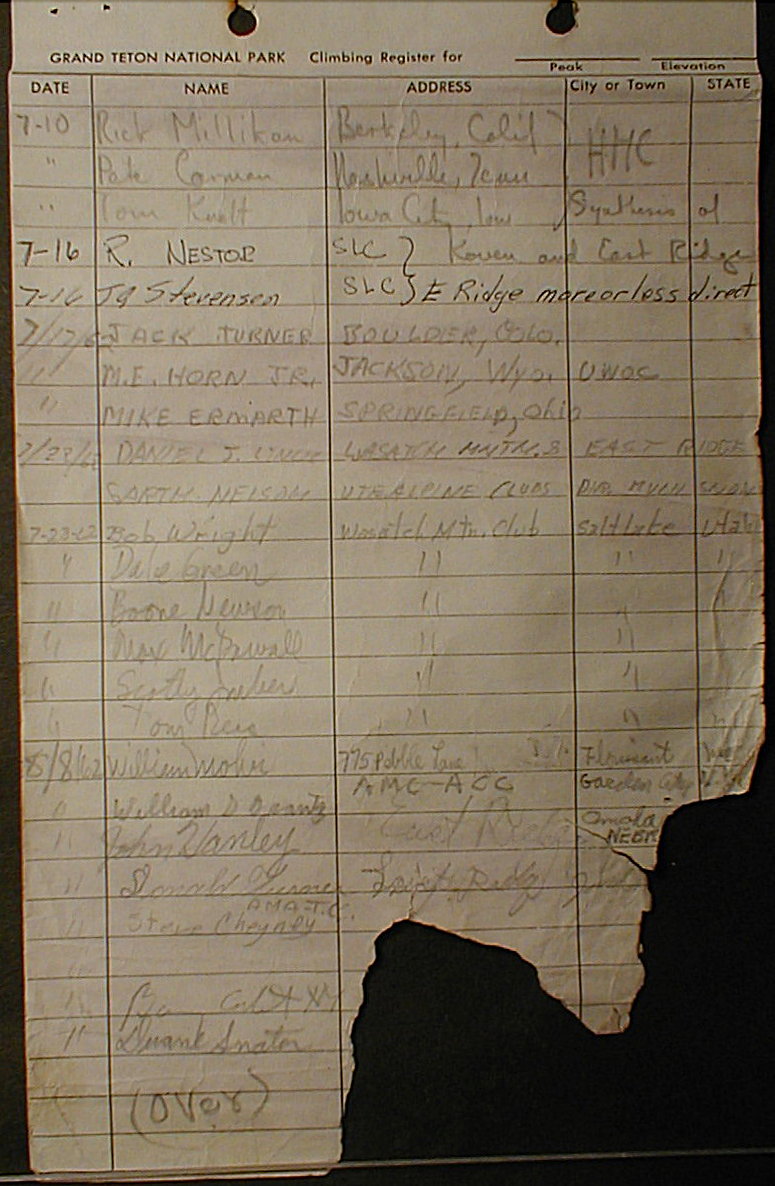 GRAND TETON NATIONAL PARK Climbing Register for
Peak Elevation
DATE NAME ADDRESS City or Town STATE
7-10 Rick Millikan Berkeley, Calif } HMC
" Pete Carman Nashville, Tenn
" Tom Knott Iowa City, Iow Synthesis of
7-16 R. NESTOR SLC } Koven and East Ridge
7-16 JQ Stevensen SLC } E Ridge more or less direct
7/17/62 JACK TURNER BOULDER, COLO.
" M.E. HORN JR., JACKSON, Wyo. UWOC
" MIKE ERMARTH SPRINGFIELD, Ohio
7/23/62 DANIEL J. LYNCH WASATCH MNTN. & EAST RIDGE
GARTH NELSON UTE ALPINE CLUBS MUCH SNOW
7-23-62 Bob Wright Wasatch Mtn. Club Salt Lake Utah
" Dale Green " " "
" Boone Newson " " "
" Max McDowall " "
" Scotty " " "
" Tom " " "
8/8/62 William 775 Pebble Lane Florissant
AMC-ACC Garden City
" William D East Ridge Omaha
" John Hanley NEBR
" Donald Turner Ridge
AMA.T.C.
" Steve Cheyney
"
"
" Duank Snator
(OVer)